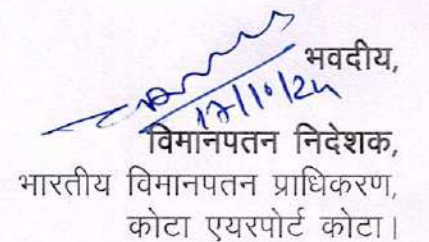 भवदीय,
17/10/24
विमानपतन निदेशक,
भारतीय विमानपतन प्राधिकरण,
कोटा एयरपोर्ट कोटा।